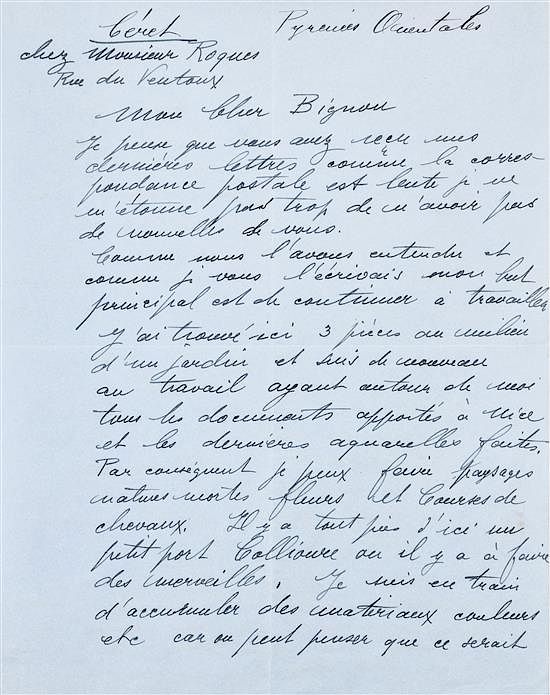 Céret Pyrénées Orientales
chez Monsieur Roques
Rue du Ventoux
Mon Cher Bignou
Je pense que vous avez reçu mes
dernières lettres comme la corres-
pondance postale est lente je ne
m'étonne pas trop de n'avoir pas
de nouvelles de vous.
Comme nous l'avons entendu et
comme je vous l'écrivais mon but
principal est de continuer à travailler
J'ai trouvé ici 3 pièces au milieu
d'un jardin et suis de nouveau
au travail ayant autour de moi
tous les documents apportés à Nice
et les dernières aquarelles faites.
Par conséquent je peux faire paysages
natures mortes fleurs et Courses de
chevaux. Il y a tout près d'ici un
petit port Collioure ou il y a à faire
des merveilles. Je suis en train
d'accumuler des matériaux couleurs
etc car on peut penser que ce serait